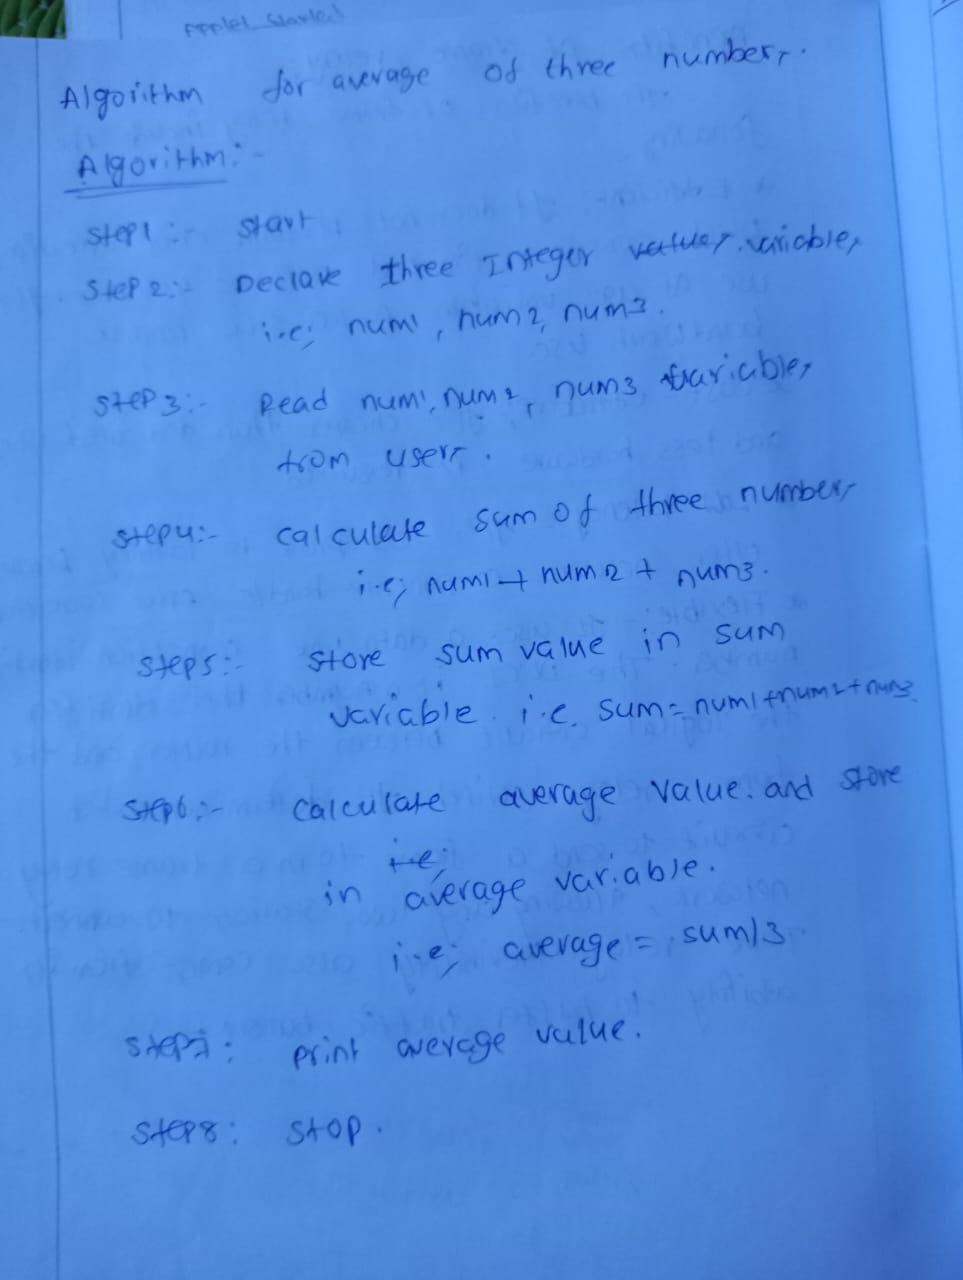 Applet Started
Algorithm for average of three numbers.
Algorithm:-
Step1:- Start
Step2:- Declare three Integer values variables
i.e; num1, num2, num3.
Step3:- Read num1, num2, num3 variables
from users.
Step4:- calculate sum of three numbers
i.e; num1 + num2 + num3.
Step5:- Store sum value in sum
variable i.e. sum=num1+num2+num3
Step6:- calculate average value. and store
i.e;
in average variable.
i.e; average = sum/3
Step7: print average value.
Step8: Stop.